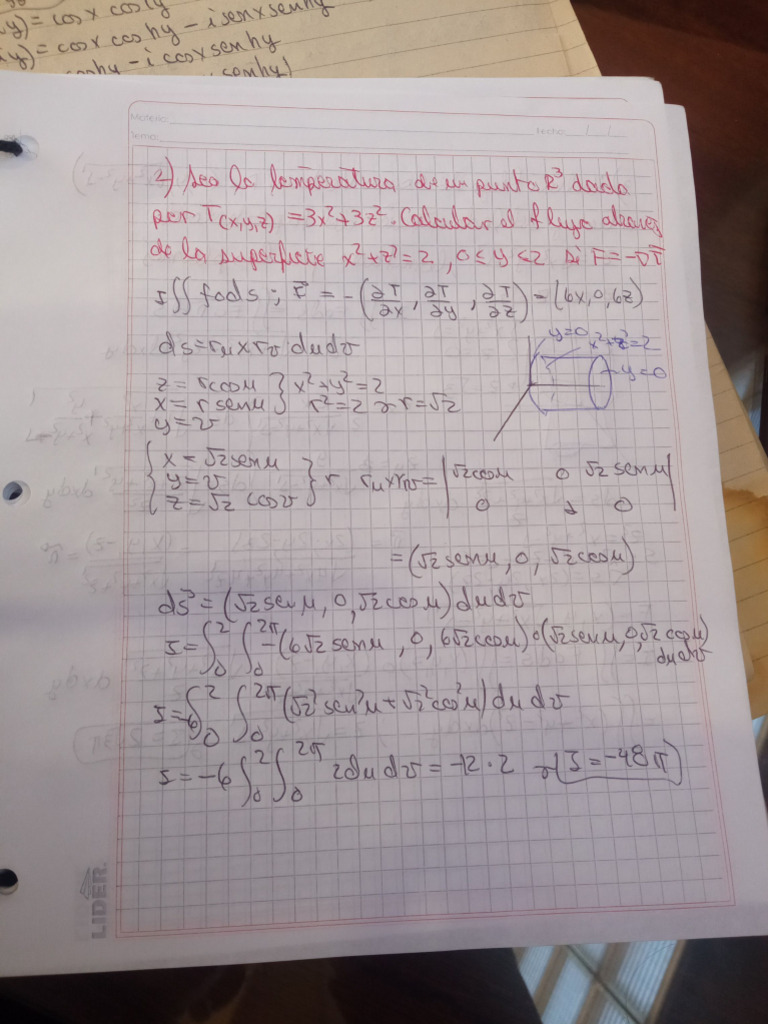 y) = cosx cos(y
iy) = cosx coshy - i senx senhy
coshy - i cosx senhy
Materia:
Tema:
Fecha: / /
2) Sea la temperatura de un punto R³ dada
por T(x,y,z) = 3x²+3z². Calcular el flujo através
de la superficie x²+z²=2, 0≤y≤2 si F=-∇T
I∬ fods; F = -(∂T/∂x, ∂T/∂y, ∂T/∂z) = (6x,0,6z)
ds = ru x rv dudv
y=0 x²+z²=2
y=0
z = rcosu } x²+y²=2
x = r senu } r²=2 → r=√2
y = v
{ x = √2 senu
y = v
z = √2 cosv } r ru x rv = | √2cosu 0 √2 senu |
| 0 1 0 |
= (√2 senu, 0, √2 cosu)
ds = (√2 senu, 0, √2 cosu) dudv
I = ∫₀² ∫₀^2π -(6√2 senu, 0, 6√2 cosu) o (√2 senu, 0, √2 cosu)
dudv
I = -6 ∫₀² ∫₀^2π (√2² sen²u + √2² cos²u) du dv
I = -6 ∫₀² ∫₀^2π 2 du dv = -12 · 2 → I = -48π
LIDER